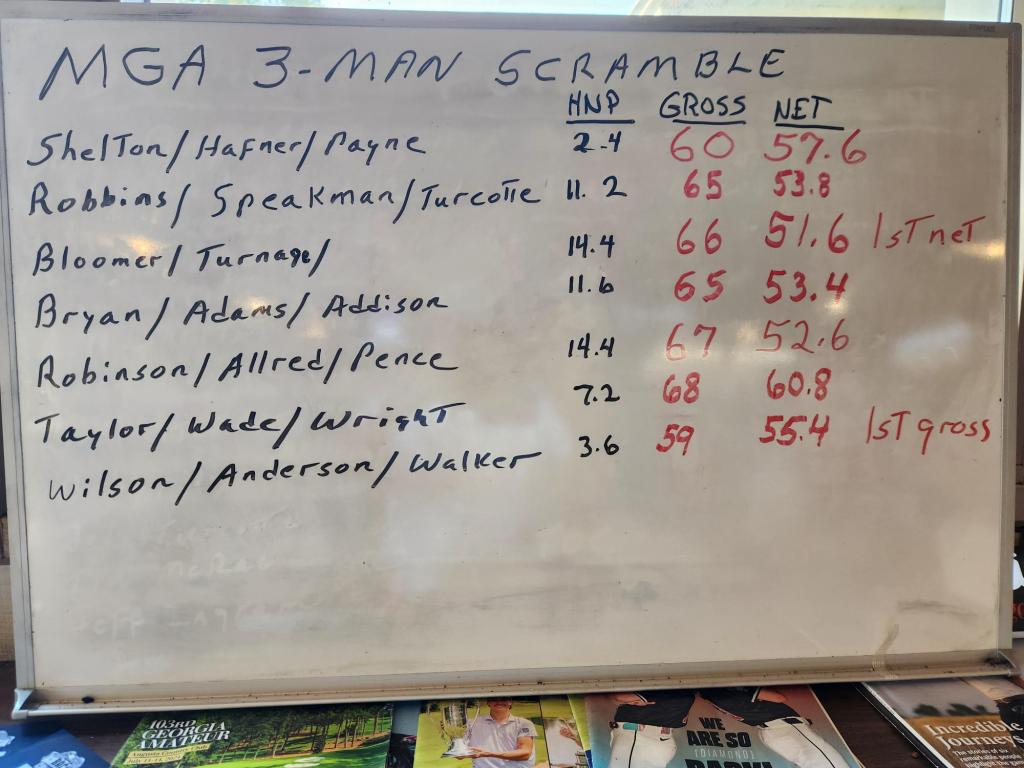 MGA 3-MAN SCRAMBLE
HNP GROSS NET
Shelton/Hafner/Payne 2.4 60 57.6
Robbins/Speakman/Turcotte 11.2 65 53.8
Bloomer/Turnage/ 14.4 66 51.6 1st net
Bryan/Adams/Addison 11.6 65 53.4
Robinson/Allred/Pence 14.4 67 52.6
Taylor/Wade/Wright 7.2 68 60.8
Wilson/Anderson/Walker 3.6 59 55.4 1st gross
103RD
GEORGIA
AMATEUR
WE
ARE SO
(DIAMOND)
DARK!
Incredible
Journeys